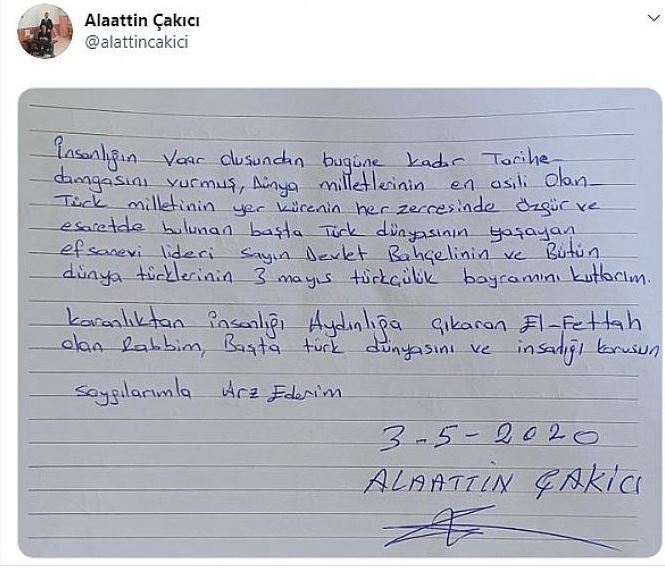 Alaattin Çakıcı
@alattincakici
İnsanlığın Vaar oluşundan bugüne kadar Tarihe-
damgasını vurmuş, Dünya milletlerinin en asili olan-
Türk milletinin yer kürenin her zerresinde özgür ve
esaretde bulunan başta Türk dünyasının yaşayan
efsanevi lideri sayın Devlet Bahçelinin ve Bütün
dünya türklerinin 3 mayıs türkçülük bayramını kutlarım.
karanlıktan insanlığı Aydınlığa çıkaran El-Fettah
olan Rabbim, Başta türk dünyasını ve insanlığı korusun
saygılarımla Arz Ederim
3-5-2020
ALAATTİN ÇAKICI